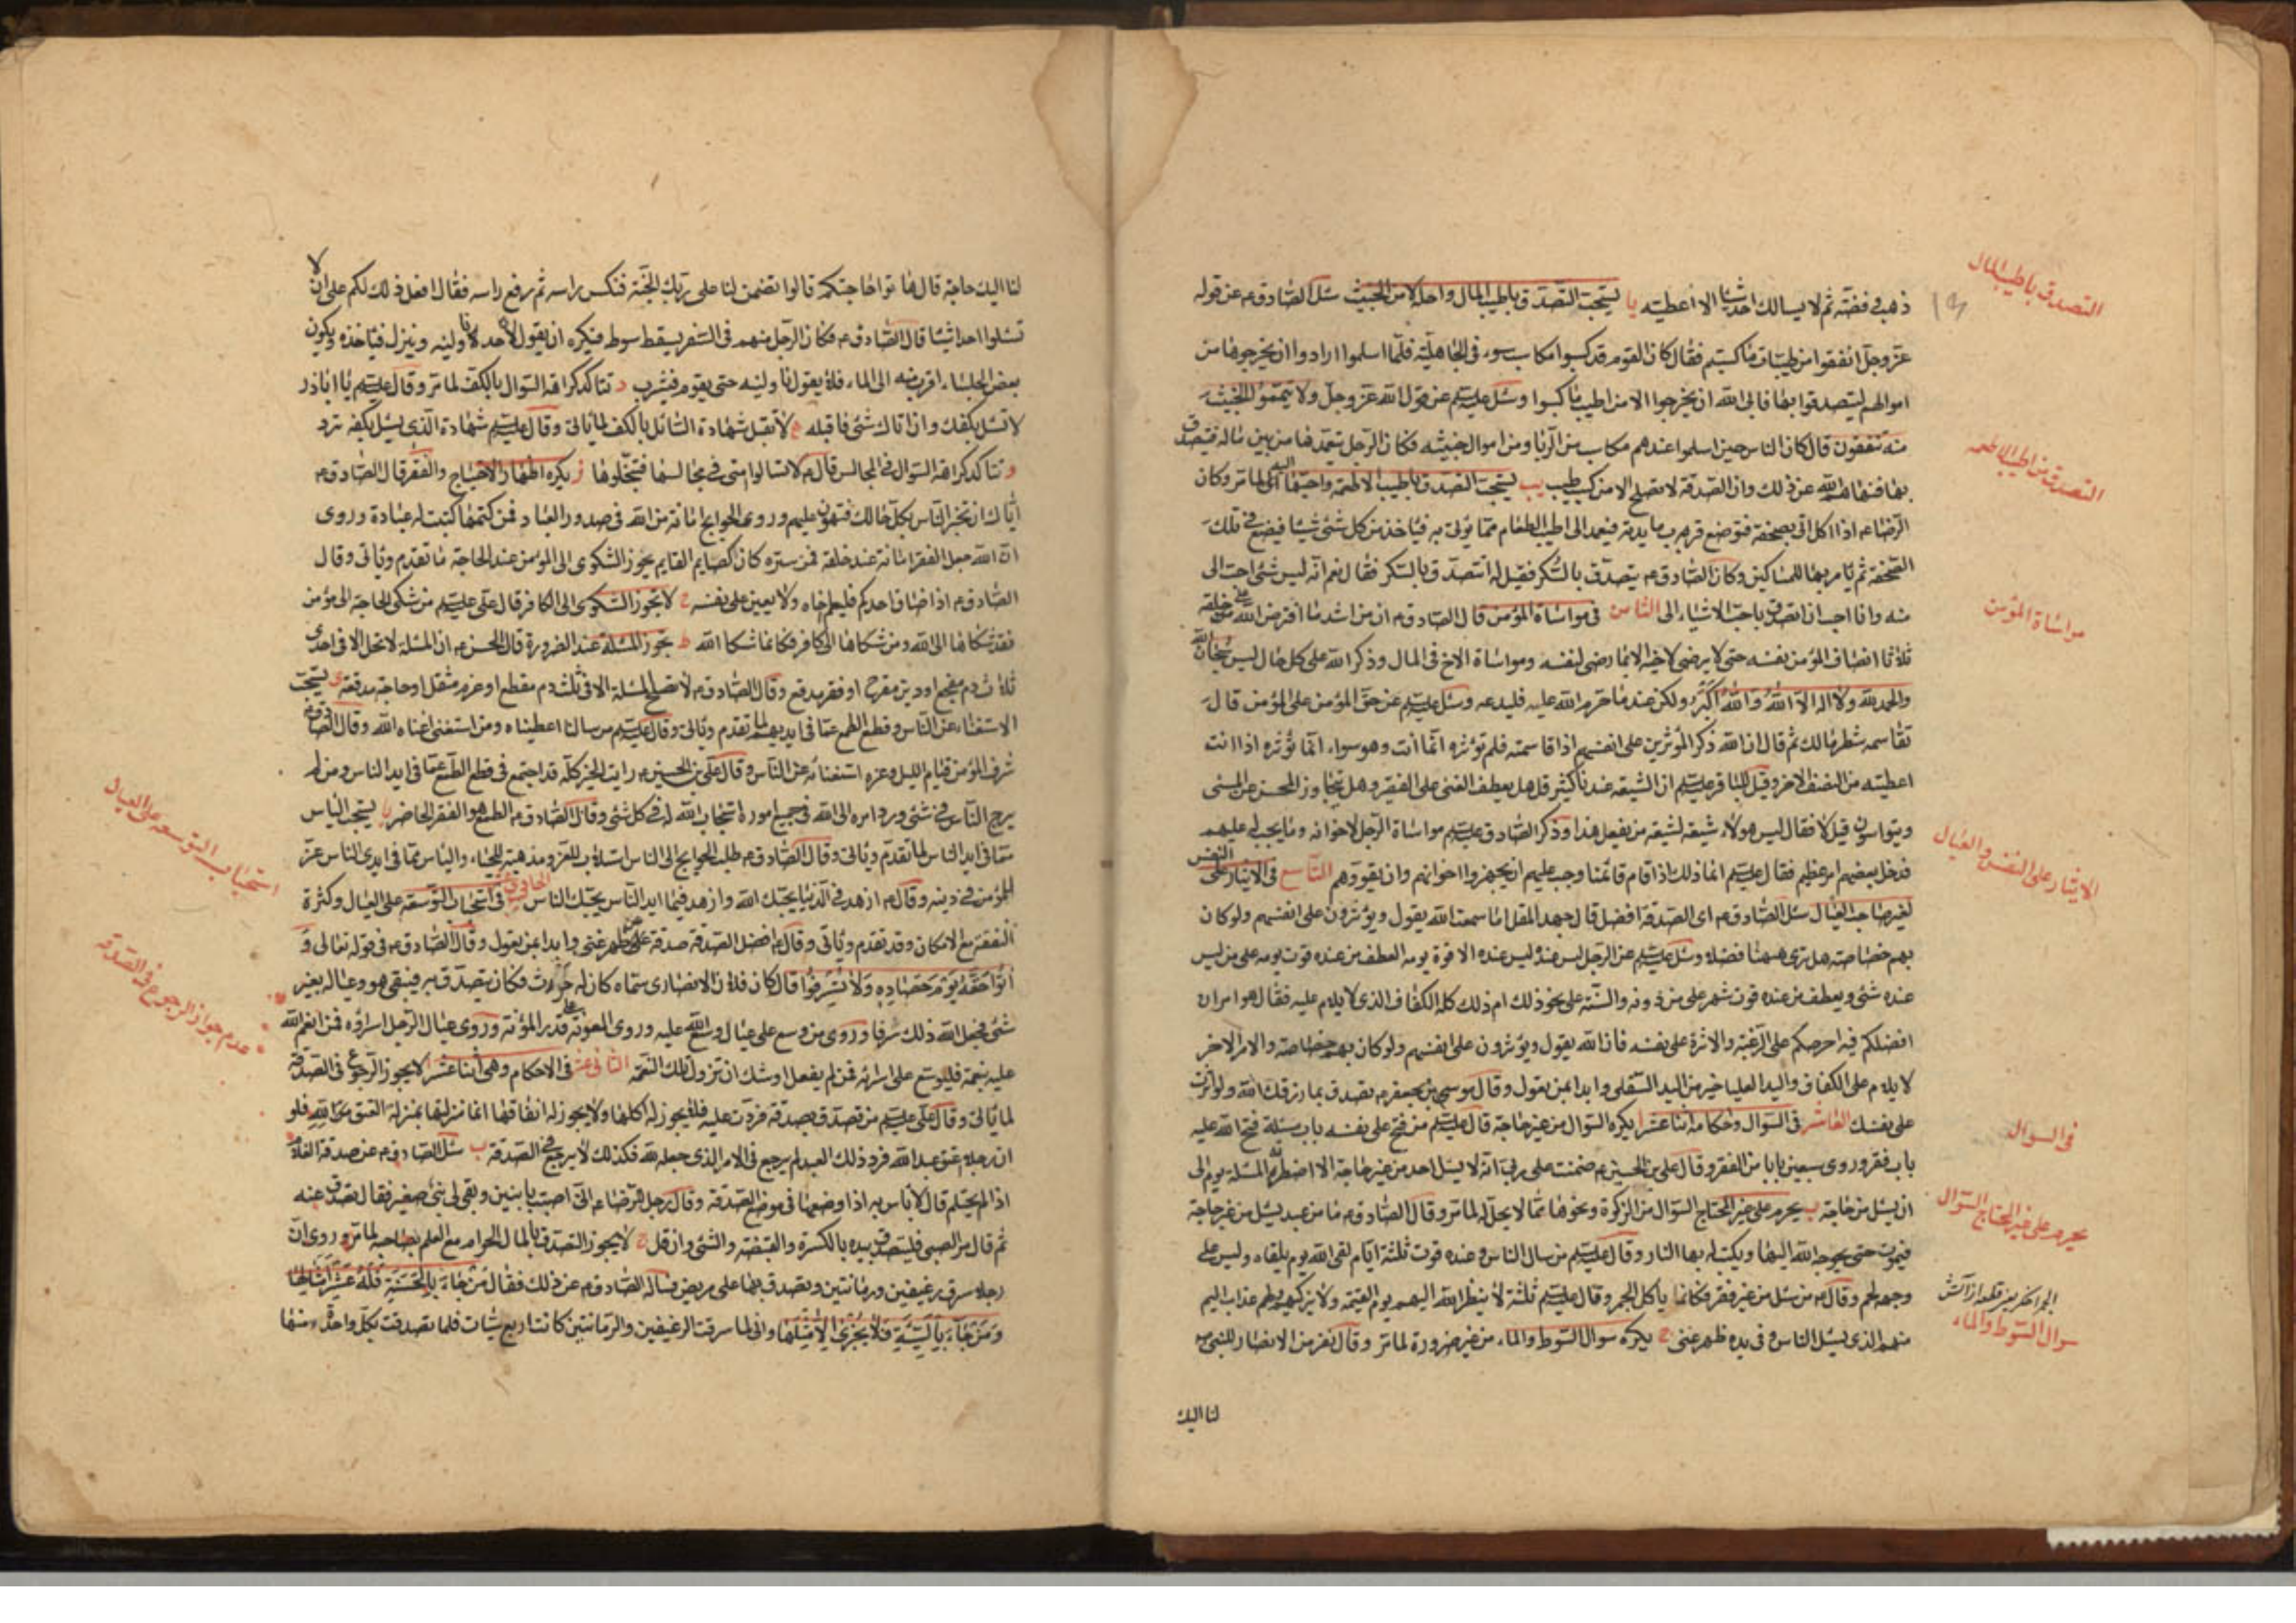 التصدق باطيب المال
ذهب وفضة ثم لا يسالك احد شيئا الا اعطيته يا يستحب التصدق باطيب المال واحله لا من الخبيث سئل الصادق ع عن قوله
عز وجل انفقوا من طيبات ما كسبتم فقال كان القوم قد كسبوا مكاسب سوء في الجاهلية فلما اسلموا ارادوا ان يخرجوها من
اموالهم ليتصدقوا بها فابى الله ان يخرجوا الا من اطيب ما كسبوا وسئل عليه السلم عن قول الله عز وجل ولا تيمموا الخبيث
منه تنفقون قال كان الناس حين اسلموا عندهم مكاسب من الربا ومن اموال خبيثه فكان الرجل يتعمدها من بين ماله فيتصدق
التصدق من اطيب الاطعمه
بها فنهاهم الله عن ذلك وان الصدقة لا تصلح الا من كسب طيب يب يستحب التصدق باطيب الاطعمة واحبها اليه لما مر وكان
الرضا ع اذا اكل اتى بصحفة فتوضع قرب مايدته فيعمد الى اطيب الطعام مما يؤتى به فياخذ من كل شئ شيئا فيضع في تلك
الصحفة ثم يامر بها للمساكين وكان الصادق ع يتصدق بالسكر فقيل له اتتصدق بالسكر فقال نعم انه ليس شئ احب الى
مواساة المؤمن
منه وانا احب ان اتصدق باحب الاشياء الى الثامن في مواساة المؤمن قال الصادق ع ان من اشد ما افترض الله على خلقه
ثلاثا انصاف المؤمن نفسه حتى لا يرضى لاخيه الا بما رضى لنفسه ومواساة الاخ في المال وذكر الله على كل حال ليس سبحان الله
والحمد لله ولا اله الا الله والله اكبر ولكن عند ما حرم الله عليه فليدعه وسئل عليه السلم عن حق المؤمن على المؤمن قال
تقاسمه شطر مالك ثم قال ان الله ذكر المؤثرين على انفسهم اذا قاسمته فلم تؤثره انما انت وهو سواء انما تؤثره اذا انت
اعطيته من النصف الاخر وقيل للباقر عليه السلم ان الشيعه عندنا كثير قل هل يعطف الغنى على الفقير وهل يتجاوز المحسن عن المسئ
الايثار على النفس والعيال
ويتواسون قيل لا فقال ليس هولاء شيعة الشيعة من يفعل هذا وذكر الصادق عليه السلم مواساة الرجل لاخوانه وما يجب له عليهم
فدخل بعضهم امر عظيم فقال عليه السلم انما ذلك اذا قام قائمنا وجب عليهم ان يجهزوا اخوانهم وان يقووهم التاسع في الايثار على النفس
لغير صاحب العيال سئل الصادق ع اى الصدقة افضل قال جهد المقل اما سمعت الله يقول ويؤثرون على انفسهم ولو كان
بهم خصاصة هل ترى ههنا فضلا وسئل عليه السلم عن الرجل ليس عنده الا قوة يومه ايعطف من عنده قوت يومه على من ليس
عنده شئ ويعطف من عنده قوت شهر على من دونه والسنة على نحو ذلك ام ذلك كله الكفاف الذى لا يلام عليه فقال هو امران
افضلكم فيه احرصكم على الرغبة والاثرة على نفسه فان الله يقول ويؤثرون على انفسهم ولو كان بهم خصاصة والامر الاخر
لا يلام على الكفاف واليد العليا خير من اليد السفلى وابدا بمن تعول وقال موسى بن جعفر ع تصدق بما رزقك الله ولو اثرت
في السوال
على نفسك العاشر في السوال واحكامه اثنا عشر ا يكره السوال من غير حاجة قال عليه السلم من فتح على نفسه باب مسئلة فتح الله عليه
باب فقر وروى سبعين بابا من الفقر وقال على بن الحسين ع ضمنت على ربى انه لا يسئل احد من غير حاجة الا اضطرته المسئلة يوما الى
يحرم على غير المحتاج السوال
ان يسئل من حاجة ب يحرم على غير المحتاج السوال من الزكوة ونحوها مما لا يحل له لما مر وقال الصادق ع ما من عبد يسئل من غير حاجة
فيموت حتى يحوجه الله اليها ويكتب له بها النار وقال عليه السلم من سال الناس وعنده قوت ثلثة ايام لقى الله يوم يلقاه وليس على
وجهه لحم وقال ع من سئل من غير فقر فكانما ياكل الجمر وقال عليه السلم ثلثة لا ينظر الله اليهم يوم القيمة ولا يزكيهم ولهم عذاب اليم
سوال السوط والماء
منهم الذى يسئل الناس وفى يده ظهر غنى ج يكره سوال السوط والماء من غير ضرورة لما مر وقال نفر من الانصار للنبى ص
لنا اليك
لنا اليك حاجة قال هاتوا حاجتكم قالوا تضمن لنا على ربك الجنة فنكس راسه ثم رفع راسه فقال افعل ذلك لكم على ان لا
تسئلوا احدا شيئا قال الصادق ع فكان الرجل منهم في السفر يسقط سوطه فيكره ان يقول لاحد ناولنيه وينزل فياخذه ويكون
بعض الجلساء اقرب منه الى الماء فلا يقول ناولنيه حتى يقوم فيشرب د تتاكد كراهة السوال بالكف لما مر وقال عليه السلم يا ابا ذر
لا تسئل بكفك وان اتاك شئ فاقبله ه لا تقبل شهادة السائل بالكف لما ياتى وقال عليه السلم شهادة الذى يسئل بكفه ترد
و تتاكد كراهة السوال في المجالس قال ع لا تسالوا امتى في مجالسها فتبخلوها ز يكره اظهار الاحتياج والفقر قال الصادق ع
اياك ان تخبر الناس بكل حالك فتهون عليهم وروى الحوايج امانة من الله في صدور العباد فمن كتمها كتبت له عبادة وروى
ان الله جعل الفقر امانة عند خلقه فمن ستره كان كالصايم القايم يجوز الشكوى الى المؤمن عند الحاجة لما تقدم وياتى وقال
الصادق ع اذا ضاق احدكم فليعلم اخاه ولا يعين على نفسه ح لا تجوز الشكوى الى الكافر قال على عليه السلم من شكى الحاجة الى مؤمن
فقد شكاها الى الله ومن شكاها الى كافر فكانما شكا الله ط تجوز المسئلة عند الضرورة قال الحسن ع ان المسئلة لا تحل الا في احدى
ثلاث دم مفجع او دين مقرح او فقر مدقع وقال الصادق ع لا تصلح المسئلة الا في ثلث دم مقطع او غرم مثقل او حاجة مدقعة ى يستحب
الاستغناء عن الناس وقطع الطمع عما في ايديهم لما تقدم وياتى وقال عليه السلم من سالنا اعطيناه ومن استغنى اغناه الله وقال الصادق ع
شرف المؤمن قيام الليل وعزه استغنائه عن الناس وقال على بن الحسين ع رايت الخير كله قد اجتمع في قطع الطمع عما في ايدى الناس ومن لم
يرج الناس في شئ ورد امره الى الله في جميع اموره استجاب الله له في كل شئ وقال الصادق ع الطمع هو الفقر الحاضر يا يستحب الياس
استحباب التوسعه على العيال
مما في ايدى الناس لما تقدم وياتى وقال الصادق ع طلب الحوايج الى الناس استلاب للعز ومذهبة للحياء والياس مما في ايدى الناس عز
للمؤمن في دينه وقال ع ازهد في الدنيا يحبك الله وازهد فيما في ايدى الناس يحبك الناس الحادى عشر في استحباب التوسعه على العيال وكثرة
النفقة مع الامكان وقد تقدم وياتى وقال ع افضل الصدقة صدقة عن ظهر غنى وابدا بمن تعول وقال الصادق ع في قوله تعالى و
اتوا حقه يوم حصاده ولا تسرفوا قال كان فلان الانصارى سماه كان له حرث فكان يتصدق به فيبقى هو وعياله بغير
عدم جواز الرجوع في الصدقة
شئ فجعل الله ذلك سرفا وروى من وسع على عياله وسع الله عليه وروى المعونة على قدر المؤنة وروى عيال الرجل اسراؤه فمن انعم الله
عليه بنعمة فليوسع على اسرائه فمن لم يفعل اوشك ان تزول تلك النعمة الثانى عشر في الاحكام وهى اثنا عشر ا لا يجوز الرجوع في الصدقة
لما ياتى وقال على عليه السلم من تصدق بصدقة فردت عليه فلا يجوز له اكلها ولا يجوز له انفاقها انما منزلتها بمنزلة العتق لله فلو
ان رجلا اعتق عبدا لله فرد ذلك العبد لم يرجع في الامر الذى جعله لله فكذلك لا يرجع في الصدقة ب سئل الصادق ع عن صدقة الغلام
اذا لم يحتلم قال لا باس به اذا وضعها في موضع الصدقة وقال رجل للرضا ع انى اصبت بابنين وبقى لى بنى صغير فقال تصدق عنه
ثم قال مر الصبى فليتصدق بيده بالكسرة والقبضة والشئ وان قل ج لا يجوز التصدق بالمال الحرام مع العلم بصاحبه لما مر وروى ان
رجلا سرق رغيفين ورمانتين وتصدق بهما على مريض فساله الصادق ع عن ذلك فقال من جاء بالحسنة فله عشر امثالها
ومن جاء بالسيئة فلا يجزى الا مثلها وانى لما سرقت الرغيفين والرمانتين كانت اربع سيئات فلما تصدقت بكل واحدة منها